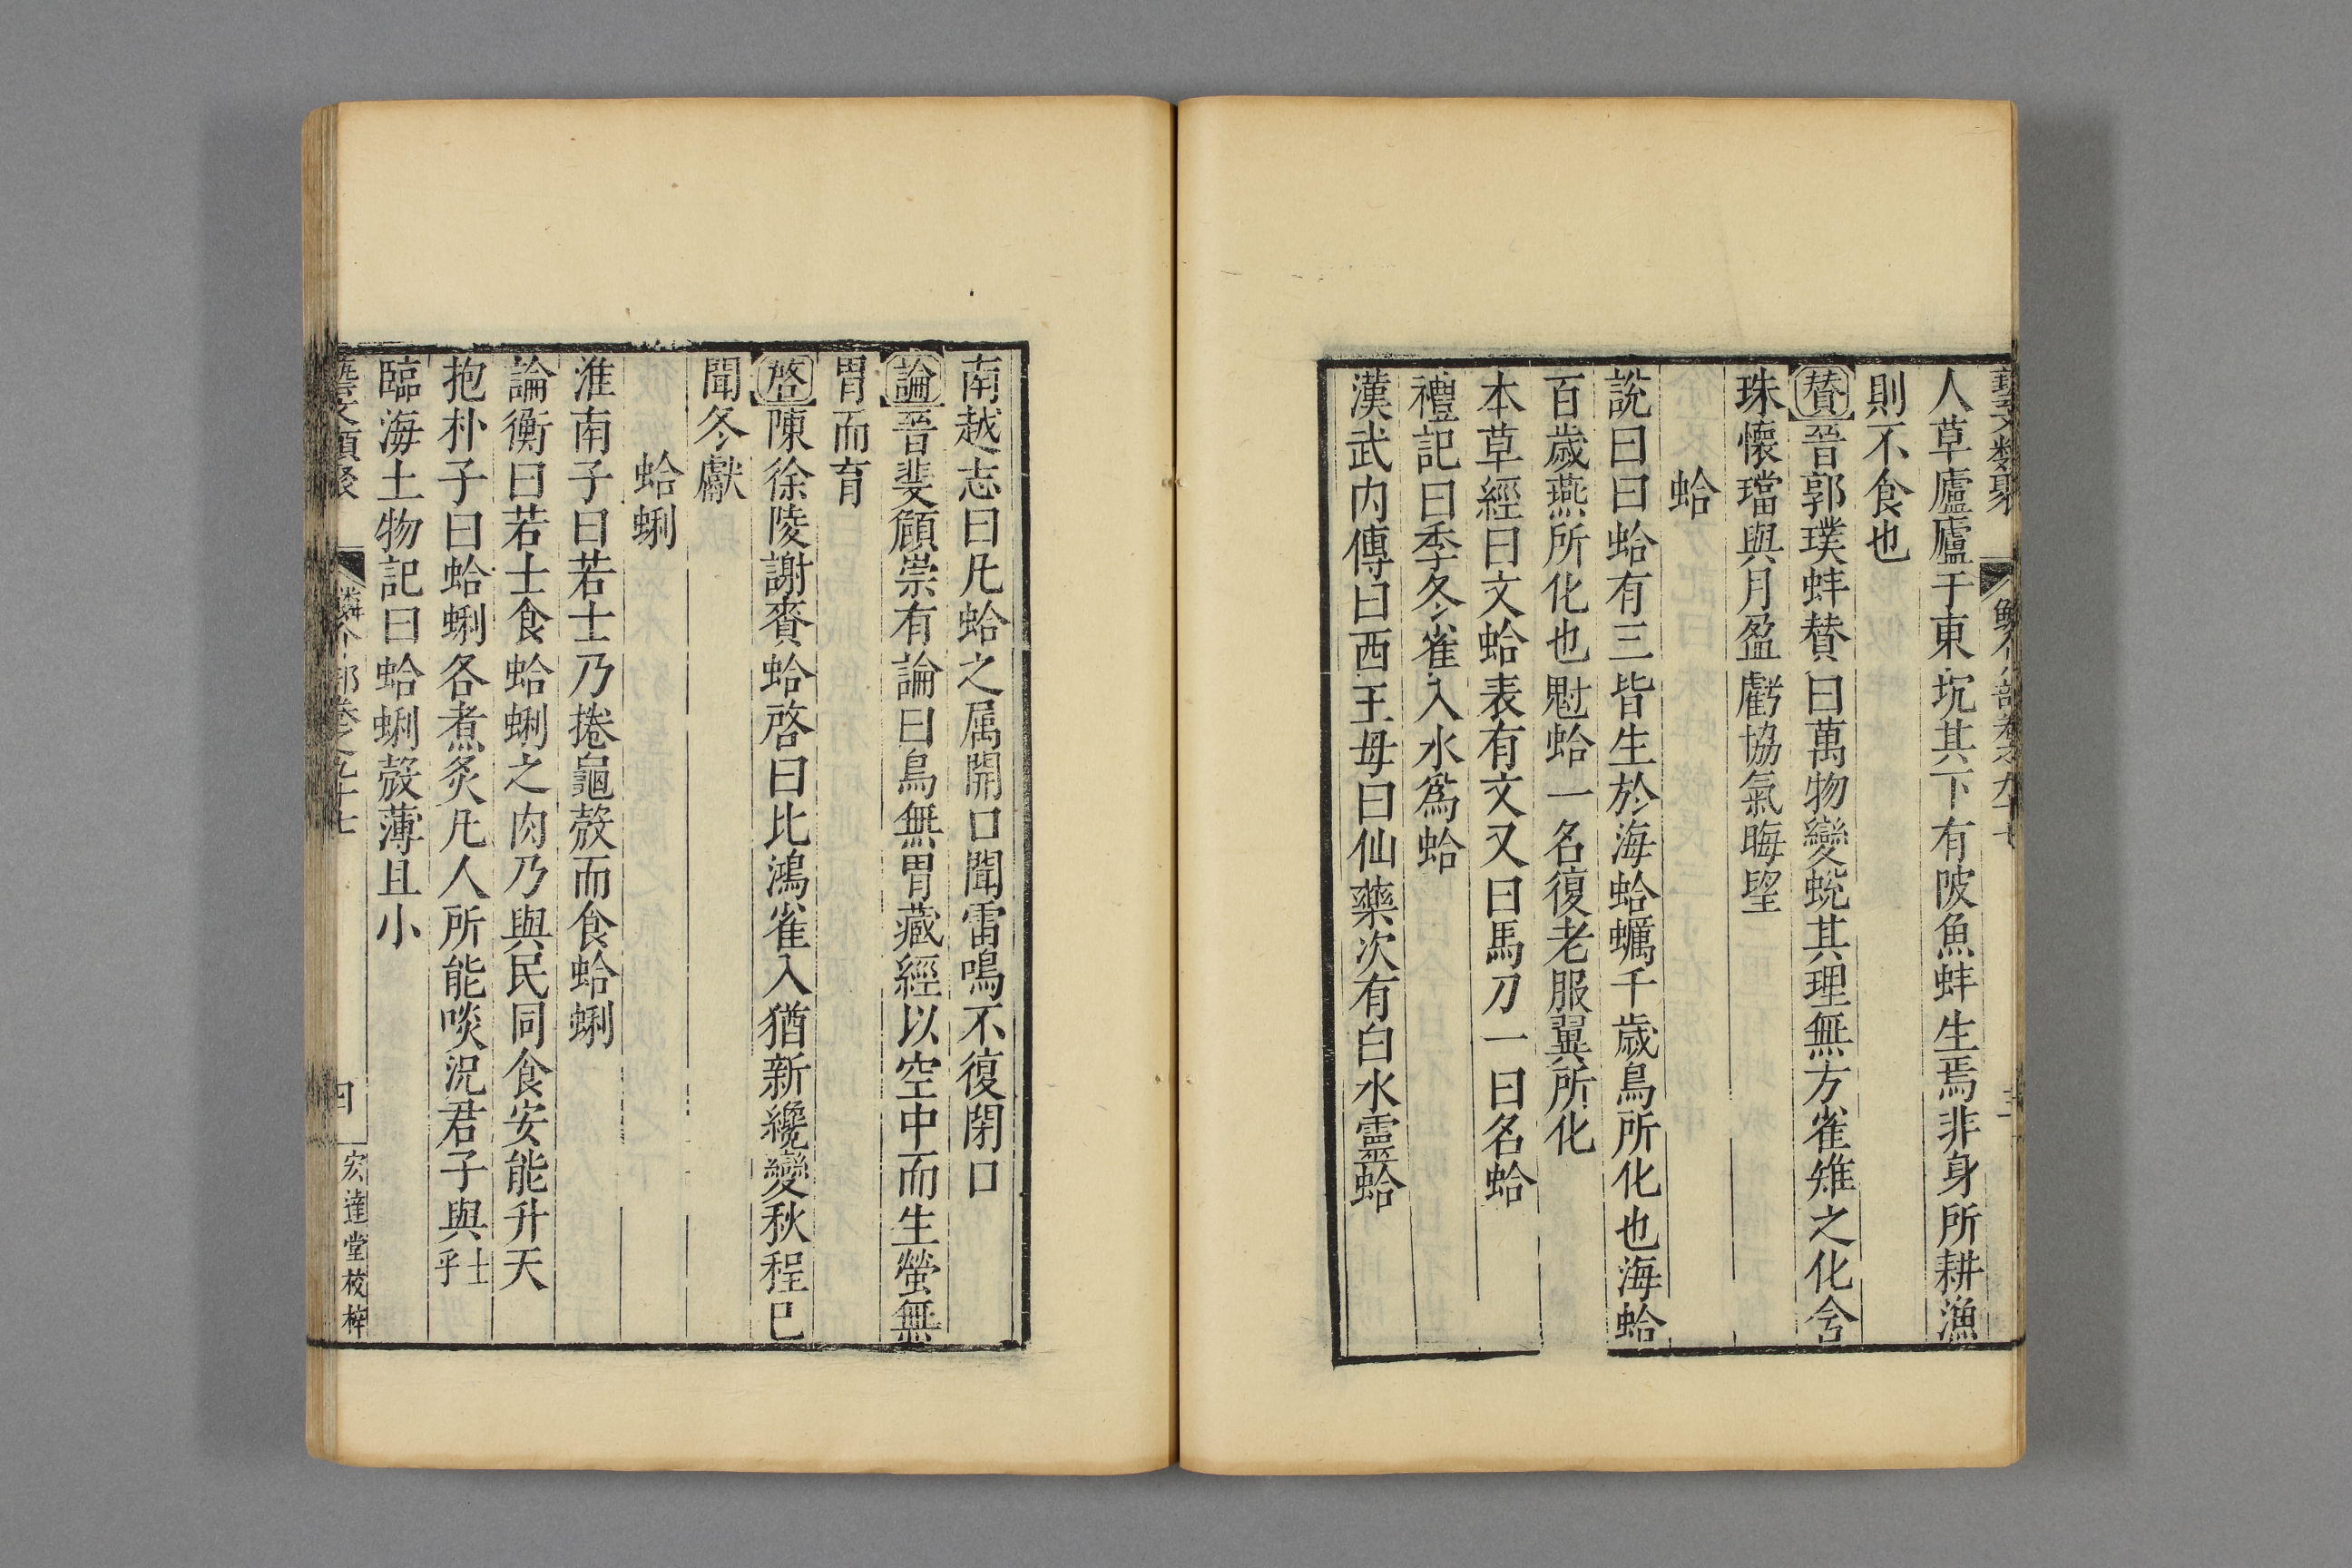 藝文類聚 鱗介部卷之九十七 三
人草廬廬于東坑其下有陂魚蚌生焉非身所耕漁
則不食也
贊晉郭璞蚌賛曰萬物變蛻其理無方雀雉之化含
珠懷璫與月盈虧協氣晦望
蛤
說曰曰蛤有三皆生於海蛤蠣千歲鳥所化也海蛤
百歲燕所化也魁蛤一名復老服翼所化
本草經曰文蛤表有文又曰馬刀一曰名蛤
禮記曰季冬雀入水爲蛤
漢武內傳曰西王母曰仙藥次有白水靈蛤
南越志曰凡蛤之屬開口聞雷鳴不復閉口
論晉裴頠崇有論曰鳥無胃藏經以空中而生螢無
胃而育
啓陳徐陵謝賚蛤啓曰比鴻雀入猶新纔變秋程巳
聞冬獻
蛤蜊
淮南子曰若士乃捲龜殼而食蛤蜊
論衡曰若士食蛤蜊之肉乃與民同食安能升天
抱朴子曰蛤蜊各煮炙凡人所能啖況君子與士乎
臨海土物記曰蛤蜊殼薄且小
藝文類聚 鱗介部卷之九十七 四 宏達堂校梓